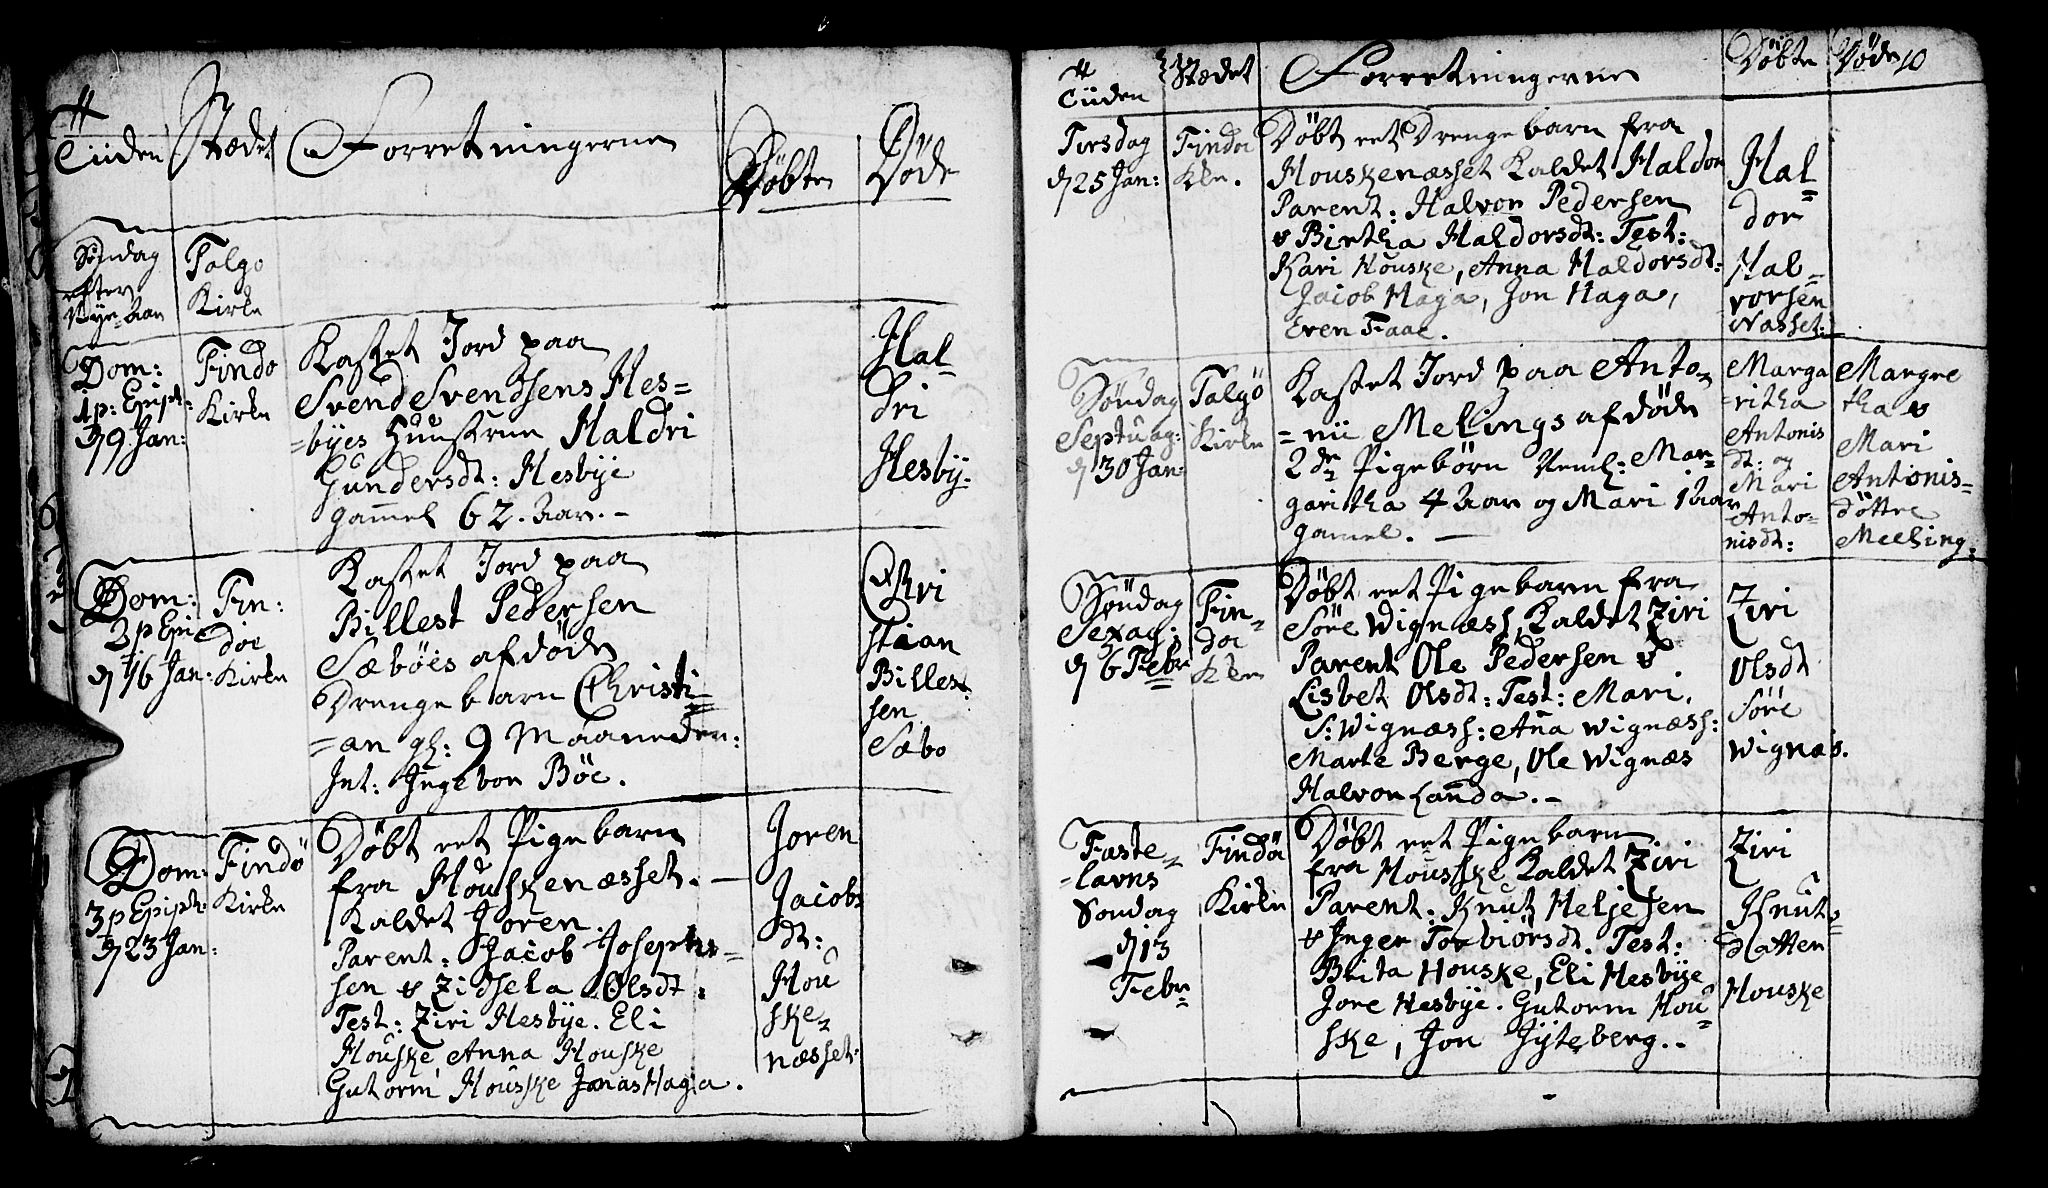 Tiiden
Stædet
Forretningerne
Döbte
Döde
Söndag
efter
Nye-Aar
Talgö
Kirke
Dom:
1 p: Epiph:
d 9 Jan:
Findö
Kirke
Kastet Jord paa
Svend Svendsens Hes=
=byes Huustrue Haldri
Gundersdt: Hesbye
gamel 62. Aar. -
Hal-
dri
Hesby.
Dom:
2 p Epi
d 16 Jan:
Fin:
döe
Kirke
Kastet Jord paa
Billest Pedersen
Sæböes afdöde
Drengebarn Christi=
=an gl: 9 Maaneder:
Int: Ingebor Böe.
Chri
stian
Billest
sen
Sæbo
Dom:
3 p Epiph:
d 23 Jan:
Findö
Kirke
Döbt eet Pigebarn
fra Houskenæsset. -
Kaldet Joren
Parent: Jacob Josephs=
sen & Zidsela Olsdt:
Test: Ziri Hesbye. Eli
Houske, Anna Houske
Gutorm Houske Jonas Haga.
Joren
Jacobs
dt:
Hou
ske=
næsset:
Tiiden
Stædet
Forretningerne
Döbte
Döde
10
Tirsdag
d 25 Jan:
Findöe
Kke.
Döbt eet Drengebarn fra
Houskenæsset Kaldet Haldor
Parent: Halvor Pedersen
& Birtha Haldorsdt: Test:
Kari Houske, Anna Haldorsdt:
Jacob Haga, Jon Haga,
Even Faae.
Hal=
dor
Hal=
vorsen
Næsset:
Söndag
Septuag:
d 30 Jan:
Talgö
Kirke
Kastet Jord paa Anto=
=nii Melings afdöde
2de Pigebörn Neml: Mar=
garitha 4 Aar og Mari 1 Aar
gamel. -
Marga
=ritha
Antonis
dt: og
Mari
Anto=
nisdt:
Margre
tha &
Mari
Antonis=
döttre
Meeling:
Söndag
Sexag:
d 6 Febr
Fin=
döe
Kke
Döbt eet Pigebarn fra
Söre Wignæss, Kaldet Ziri
Parent Ole Pedersen &
Lisbet Olsdt: Test: Mari
S: Wignæss: Aña Wignæss:
Marte Berge, Ole Wignæs
Halvor Landa. -
Ziri
Olsdt
Söre
Wignæs.
Faste=
=lavns
Sondag
d 13
Febr
Findöe
Kirke
Döbt eet Pigebarn
fra Houske Kaldet Ziri
Parent. Knut Heljesen
& Inger Torbiörsdt. Test:
Brita Houske, Eli Hesbye
Jore Hesbye. Gutorm Hou=
ske, Jon Jÿteberg. -
Ziri
Knut=
datter
Houske